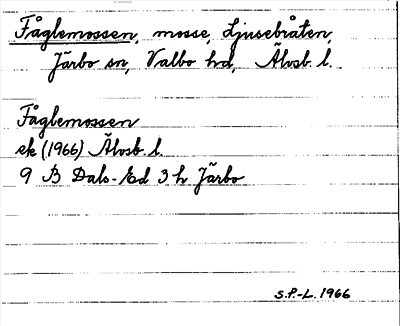 Fåglemossen, mosse, Ljusebråten,
Järbo sn, Valbo hd, Älvsb. l.
Fåglemossen
ek (1966) Älvsb. l.
9 B Dals-Ed 3 h Järbo
S.F.-L. 1966